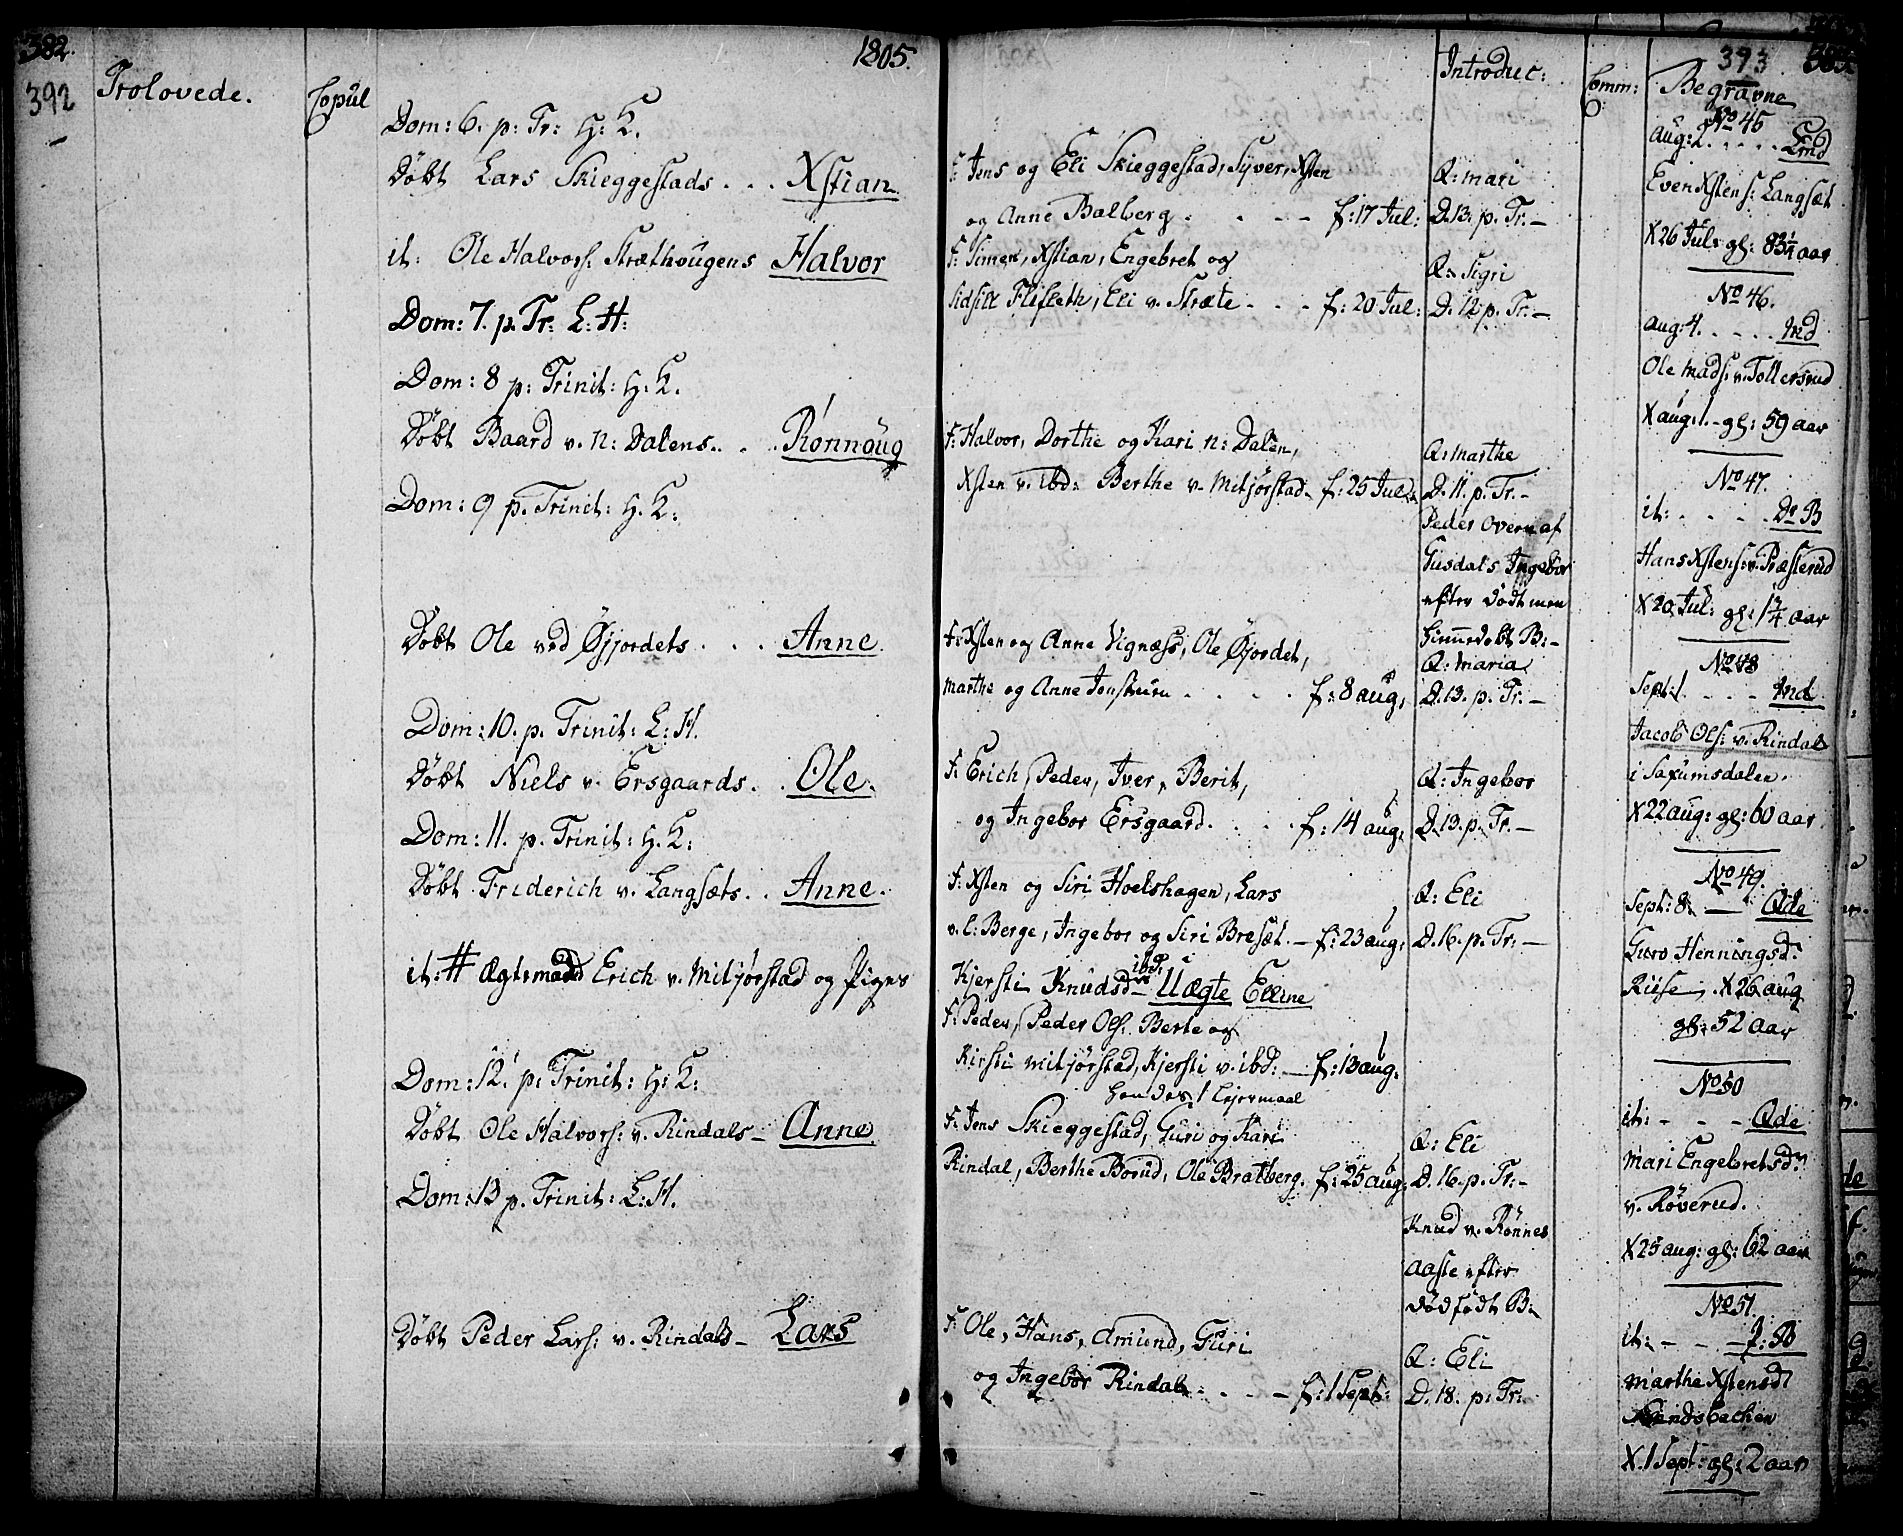 382.
392
Trolovede.
Copul
1805.
Dom: 6. p: Tr: H: K.
Døbt Lars Skieggestads . . . Xstian.
it: Ole Halvors: Stræthougens Halvor
Dom: 7. p. Tr: L: H:
Dom: 8 p: Trinit: H: K.
Døbt Baard v. n: Dalens. . . Rønnoug
Dom: 9 p. Trinit: H. K:
Døbt Ole ved Øjjordets . . . Anne.
Dom: 10. p. Trinit: L: H.
Døbt Niels v. Ersgaards. . Ole.
Dom: 11. p. Trinit: H. K:
Døbt Friderich v. Langsæts. . Anne.
it: # Ægtemand Erich v. Mitjørstad og Piges
Dom: 12. p: Trinit: H: K:
Døbt Ole Halvors: v. Rindals – Anne.
Dom: 13 p. Trinit: L: H.
Døbt Peder Lars: v. Rindals – Lars
F: Jens og Eli Skieggestad, Syver, Xsten
og Anne Balberg . . . – f: 17 Jul:
F: Simen, Xstian, Engebret og
Sidsill Flifleth, Eli v. Stræte . . . f: 20 Jul:
F: Halvor, Dorthe og Kari n: Dalen,
Xsten v. ibd: Berthe v. Mitjørstad. f: 25 Jul:
F: Xsten og Anne Vignæss, Ole Øjordet,
Marthe og Anne Jonstuen . . . . f: 8 aug,
F: Erich, Peder, Iver, Berit,
og Ingebor Ersgaard. . . . f: 14 aug,
F: Xsten og Siri Hoelshagen, Lars
v. l: Berge, Ingebor og Siri Bresæt. – f: 23 aug,
Kjersti Knudsd: v. ibd, Uægte Elline
F: Peder, Peder Ols: Berte og
Kirsti Mitjørstad, Kjersti v. ibd: – f: 13 aug.
hendes 1 Lejermaal
F: Jens Skieggestad, Guri og Kari
Rindal, Berthe Borud, Ole Bratberg. f: 25 aug:
F: Ole, Hans, Amund, Guri
og Ingebor Rindal . . . – f: 1 Sept:
Introduc:
Q: Mari
D. 13. p. Tr. –
Q: Sigri
D. 12 p. Tr: –
Q: Marthe
D. 11. p. Tr. –
Peder Overn af
Gusdals Ingebor
efter Dødt men
Hiemedøbt B: –
Q: Maria
D. 13. p. Tr. –
Q: Ingebor
D. 13. p. Tr. –
Q: Eli
D. 16. p. Tr: –
Q: Eli
D. 16. p. Tr: –
Knud v. Rønnes
Aaste efter
Dødfødt B:
Q: Eli
D. 18. p: Tr:
Comm:
393
Begravne
No 45
Aug: 2 . . . . Lmd
Even Xstens: Langsæt
X 26 Jul: gl: 83 1/4 aar
No 46.
Aug: 4. . . . . Md
Ole Mads: v. Tollersrud
X aug: 1. – gl: 59 aar
No 47.
it: . . . . Ds B
Hans Xstens: v. Præsterud
X 20 Jul: gl: 1 3/4 aar
No 48
Sept: 1. . . . Md
Jacob Ols: v. Rindal
i Saxumsdalen.
X 22 aug: gl: 60 aar
No 49.
Sept: 8. – Qde
Guro Henningsd:
Riise, X 26 aug
gl: 52 aar
No 50
it: – – – Qde
Mari Engebretsd:
v. Røverud.
X 25 aug: gl: 62 aar
No 51.
it: – – – P: B
Marthe Xstensd
X. 1 Sept: gl: 2 aar